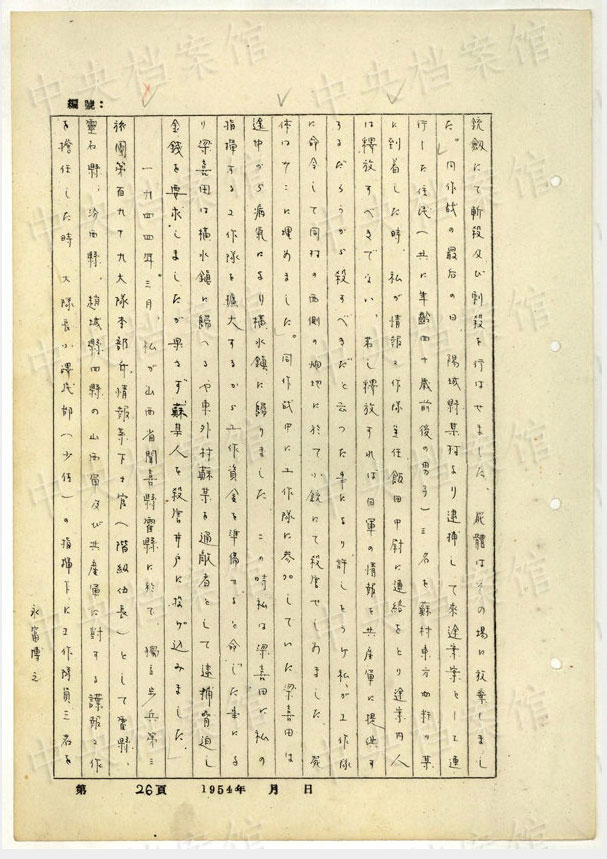 編號：
銃劔にて斬殺及び刺殺を行はせました、屍體はその場に放棄しまし
た。同作戦の最后の日 陽城縣某村より逮捕して来途案として連
行した住民（共に年齢四十歳前後の男子）三名を蘇村東方 の某
に到着した時、私が情報工作隊主任飯田中尉に連絡をとり途案内人
は釋放すべきでない、若し釋放すれば日軍の情報を共産軍に提供す
るだらうから殺すべきだと云つた事により許しをうけ私が工作隊
に命令して同村の西側の畑地に於て小銃にて殺害せしめました、屍
体は に埋めました。同作戦中に工作隊に参加していた梁喜田は
途中から病気により横水鎮に歸りました この時私は梁喜田に私の
指揮する工作隊を擴大するから工作資金を準備せよと命じた事によ
り梁喜田は横水鎮に歸へるや東外村蘇某を通敵者として逮捕脅迫し
金銭を要求しましたが果さず蘇某人を殺害井戸に投げ込みました。
一九四四年三月、私が山西省聞喜縣 に於て 獨立歩兵第三
後團第百九十九大隊本部 情報 下士官（階級伍長）として霍縣、
靈石縣、汾西縣、趙城縣四縣の山西軍及び共産軍に對する諜報工作
を擔任した時 大隊長小澤 （少佐）の指揮下に工作隊員三名を
永富博之
第 26頁 1954年 月 日
中央档案馆